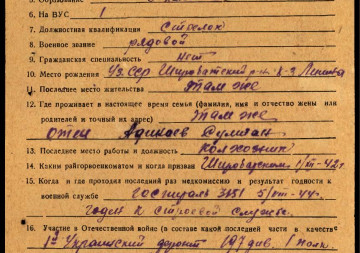 6. На ВУС 1
7. Должностная квалификация стрелок
8. Военное звание рядовой
9. Гражданская специальность нет
10. Место рождения Уз. ССР р-н к-з Ленина
11. Последнее место жительства там же
12. Где проживает в настоящее время семья (фамилия, имя и отчество жены или
родителей и точный их адрес) там же
отец
13. Последнее место работы и должность колхозник
14. Каким райгорвоенкоматом и когда призван
15. Когда и где проходил последний раз медкомиссию и результат годности к
военной службе госпиталь
годен к строевой службе.
16. Участие в Отечественной войне (в составе какой последней части и в качестве
1й Украинский фронт 197 див. 1 полк.